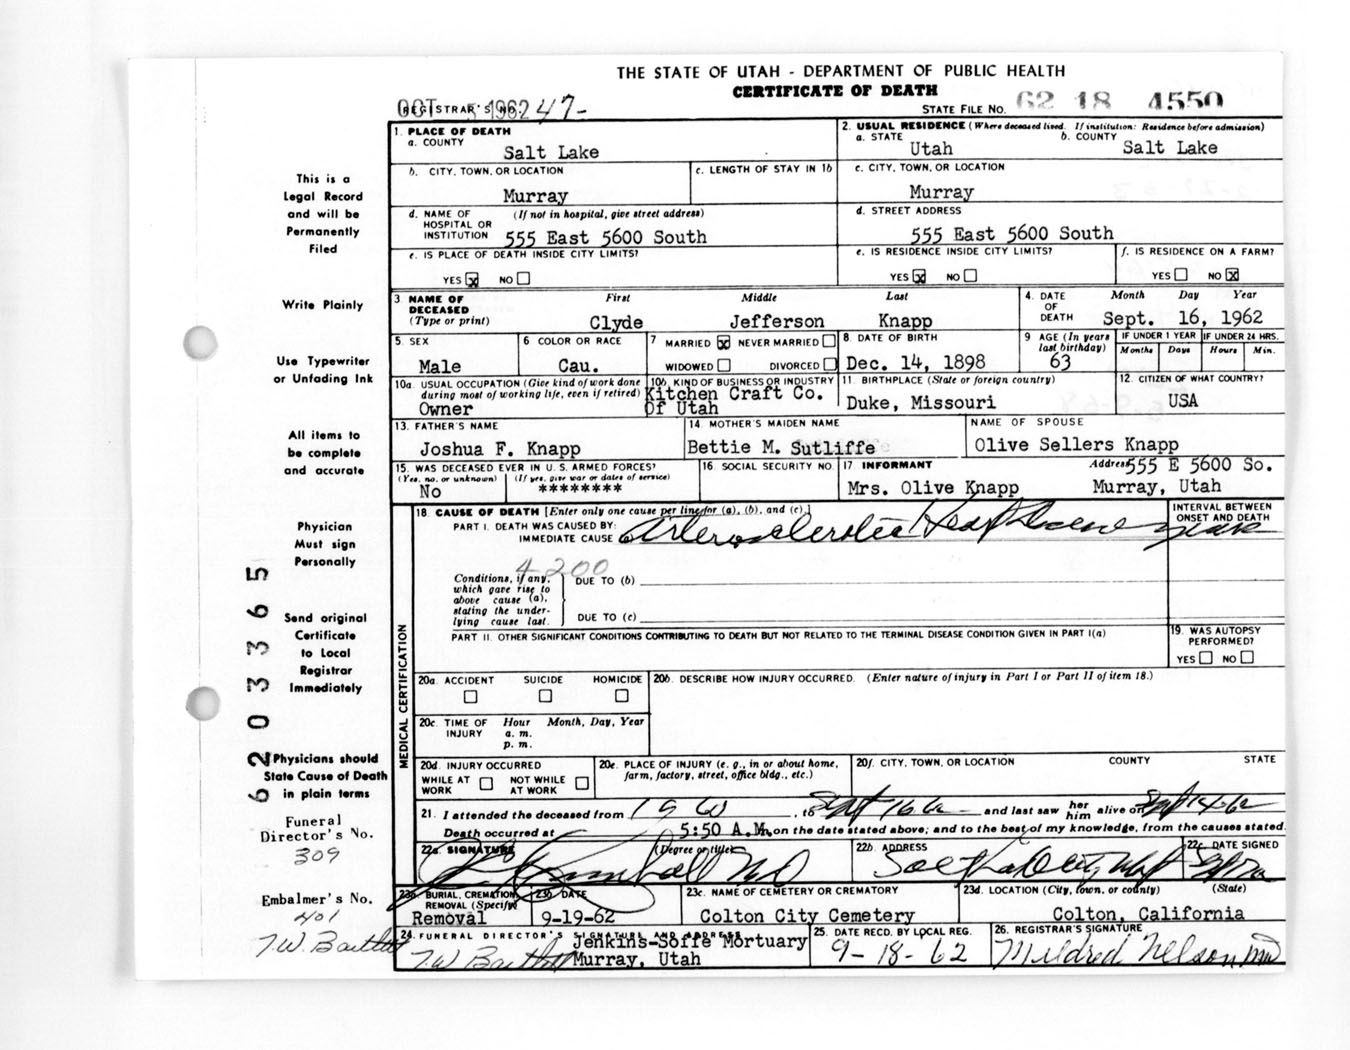 THE STATE OF UTAH - DEPARTMENT OF PUBLIC HEALTH
CERTIFICATE OF DEATH
OCT 5 1962 REGISTRAR'S NO. 247-
STATE FILE NO. 62 18 4550
This is a
Legal Record
and will be
Permanently
Filed
Write Plainly
Use Typewriter
or Unfading Ink
All items to
be complete
and accurate
Physician
Must sign
Personally
Send original
Certificate
to Local
Registrar
Immediately
Physicians should
State Cause of Death
in plain terms
Funeral
Director's No.
309
Embalmer's No.
401
T.W. Bartlett
620 3365
1. PLACE OF DEATH
a. COUNTY
Salt Lake
2. USUAL RESIDENCE (Where deceased lived. If institution: Residence before admission)
a. STATE b. COUNTY
Utah Salt Lake
b. CITY, TOWN, OR LOCATION
Murray
c. LENGTH OF STAY IN 1b
c. CITY, TOWN, OR LOCATION
Murray
d. NAME OF HOSPITAL OR INSTITUTION (If not in hospital, give street address)
555 East 5600 South
d. STREET ADDRESS
555 East 5600 South
e. IS PLACE OF DEATH INSIDE CITY LIMITS?
YES x NO
e. IS RESIDENCE INSIDE CITY LIMITS?
YES x NO
f. IS RESIDENCE ON A FARM?
YES NO x
3. NAME OF DECEASED (Type or print) First Middle Last
Clyde Jefferson Knapp
4. DATE OF DEATH Month Day Year
Sept. 16, 1962
5. SEX
Male
6 COLOR OR RACE
Cau.
7 MARRIED x NEVER MARRIED
WIDOWED DIVORCED
8. DATE OF BIRTH
Dec. 14, 1898
9 AGE (In years last birthday)
63
IF UNDER 1 YEAR IF UNDER 24 HRS.
Months Days Hours Min.
10a. USUAL OCCUPATION (Give kind of work done during most of working life, even if retired)
Owner
10b. KIND OF BUSINESS OR INDUSTRY
Kitchen Craft Co.
Of Utah
11. BIRTHPLACE (State or foreign country)
Duke, Missouri
12. CITIZEN OF WHAT COUNTRY?
USA
13. FATHER'S NAME
Joshua F. Knapp
14. MOTHER'S MAIDEN NAME
Bettie M. Sutliffe
NAME OF SPOUSE
Olive Sellers Knapp
15. WAS DECEASED EVER IN U.S. ARMED FORCES?
(Yes, no, or unknown) (If yes, give war or dates of service)
No ********
16. SOCIAL SECURITY NO.
17. INFORMANT Address
Mrs. Olive Knapp
555 E 5600 So.
Murray, Utah
MEDICAL CERTIFICATION
18. CAUSE OF DEATH [Enter only one cause per line for (a), (b), and (c).]
PART I. DEATH WAS CAUSED BY:
IMMEDIATE CAUSE Arteriosclerotic Heart Disease
INTERVAL BETWEEN ONSET AND DEATH
years
4200
Conditions, if any, which gave rise to above cause (a), stating the underlying cause last.
DUE TO (b)
DUE TO (c)
PART II. OTHER SIGNIFICANT CONDITIONS CONTRIBUTING TO DEATH BUT NOT RELATED TO THE TERMINAL DISEASE CONDITION GIVEN IN PART I(a)
19. WAS AUTOPSY PERFORMED?
YES NO
20a. ACCIDENT SUICIDE HOMICIDE
20b. DESCRIBE HOW INJURY OCCURRED. (Enter nature of injury in Part I or Part II of item 18.)
20c. TIME OF INJURY Hour Month, Day, Year
a. m.
p. m.
20d. INJURY OCCURRED
WHILE AT WORK NOT WHILE AT WORK
20e. PLACE OF INJURY (e. g., in or about home, farm, factory, street, office bldg., etc.)
20f. CITY, TOWN, OR LOCATION COUNTY STATE
21. I attended the deceased from 1960, to Sept 16 62 and last saw her him alive on Sept 14-62
Death occurred at 5:50 A.M., on the date stated above; and to the best of my knowledge, from the causes stated.
22a. SIGNATURE (Degree or title)
22b. ADDRESS
Salt Lake City, Utah
22c. DATE SIGNED
23a. BURIAL, CREMATION, REMOVAL (Specify)
Removal
23b. DATE
9-19-62
23c. NAME OF CEMETERY OR CREMATORY
Colton City Cemetery
23d. LOCATION (City, town, or county) (State)
Colton, California
24. FUNERAL DIRECTOR'S SIGNATURE AND ADDRESS
Jenkins-Soffe Mortuary
T.W. Bartlett Murray, Utah
25. DATE RECD. BY LOCAL REG.
9-18-62
26. REGISTRAR'S SIGNATURE
Mildred Nelson MD